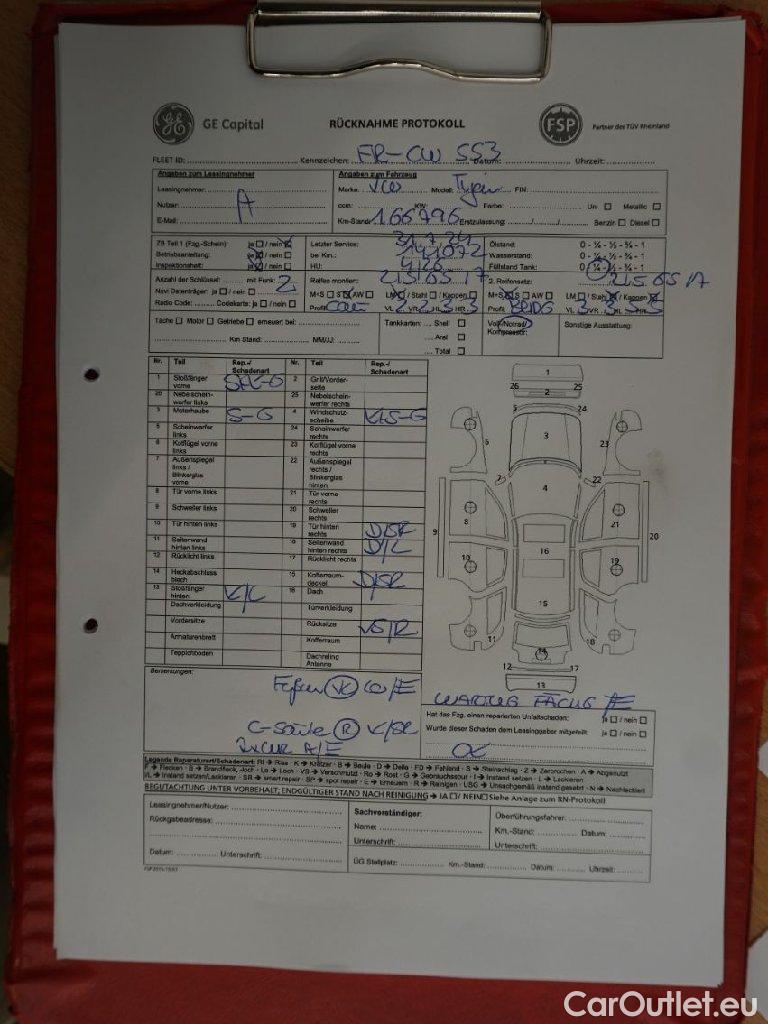 GE Capital RÜCKNAHME PROTOKOLL FSP Partner des TÜV Rheinland
FLEET ID: Kennzeichen: FR-CW 553 Datum: Uhrzeit:
Angaben zum Leasingnehmer Angaben zum Fahrzeug
Leasingnehmer: Marke: VW Modell: FIN:
Nutzer: A ccm: KW: Farbe: Uni □ Metallic □
E-Mail: Km-Stand: 166796 Erstzulassung: Benzin □ Diesel □
ZB Teil 1 (Fzg.-Schein) ja □ / nein □ Letzter Service: Ölstand: 0 - ¼ - ½ - ¾ - 1
Betriebsanleitung: ja □ / nein □ bei Km.: 141072 Wasserstand: 0 - ¼ - ½ - ¾ - 1
Inspektionsheft: ja □ / nein □ HU: Füllstand Tank: 0 - ¼ - ½ - ¾ - 1
Anzahl der Schlüssel: mit Funk: 2 Reifen montiert: 215 65 17 2. Reifensatz: 215 65 17
Navi Datenträger: ja □ / nein □ M+S □ S □ AW □ LM □ / Stahl □ / Kappen □ M+S □ S □ AW □ LM □ / Stahl □ / Kappen □
Radio Code: Codekarte: ja □ / nein □ Profil VL 2 VR 2 HL 3 HR 3 Profil VL 3 3 5 5
Tacho □ Motor □ Getriebe □ erneuert bei: Tankkarten: Shell □ Voll-/Notrad/ Sonstige Ausstattung:
Km Stand: MM/JJ: Aral □ Kompressor:
Total □
Nr. Teil Rep.-/Schadenart Nr. Teil Rep.-/Schadenart
1 Stoßfänger vorne 2 Grill/Vorderseite
26 Nebelscheinwerfer links 25 Nebelscheinwerfer rechts
3 Motorhaube S-G 4 Windschutzscheibe
5 Scheinwerfer links 24 Scheinwerfer rechts
6 Kotflügel vorne links 23 Kotflügel vorne rechts
7 Außenspiegel links / Blinkerglas vorne 22 Außenspiegel rechts / Blinkerglas hinten
8 Tür vorne links 21 Tür vorne rechts
9 Schweller links 20 Schweller rechts
10 Tür hinten links 19 Tür hinten rechts D/SR
11 Seitenwand hinten links 18 Seitenwand hinten rechts D/L
12 Rücklicht links 17 Rücklicht rechts
14 Heckabschlussblech 15 Kofferraumdeckel D/SR
13 Stoßfänger hinten K/L 16 Dach
Dachverkleidung Türverkleidung
Vordersitze Rücksitze VS/R
Armaturenbrett Kofferraum
Teppichboden Dachreling Antenne
Bemerkungen:
C-Säule R K/SR
Hat das Fzg. einen reparierten Unfallschaden: ja □ / nein □
Wurde dieser Schaden dem Leasinggeber mitgeteilt ja □ / nein □
Legende Reparaturart/Schadenart: RI → Riss · K → Kratzer · B → Beule · D → Delle · FD → Fehlend · S → Steinschlag · Z → Zerbrochen · A → Abgenutzt
F → Flecken · B → Brandfleck, -loch · Lo → Loch · VS → Verschmutzt · Ro → Rost · G → Gebrauchsspur · I → Instand setzen · L → Lackieren
I/L → Instand setzen/Lackieren · SR → smart repair · SP → spot repair · E → Erneuern · R → Reinigen · USG → Unsachgemäß instand gesetzt · N → Nachlackiert
BEGUTACHTUNG UNTER VORBEHALT; ENDGÜLTIGER STAND NACH REINIGUNG → JA □ / NEIN □ Siehe Anlage zum RN-Protokoll
Leasingnehmer/Nutzer: Sachverständiger: Überführungsfahrer:
Rückgabeadresse: Name: Km.-Stand: Datum:
Unterschrift: Unterschrift:
Datum: Unterschrift: ÜG Stellplatz: Km.-Stand: Datum: Uhrzeit:
CarOutlet.eu